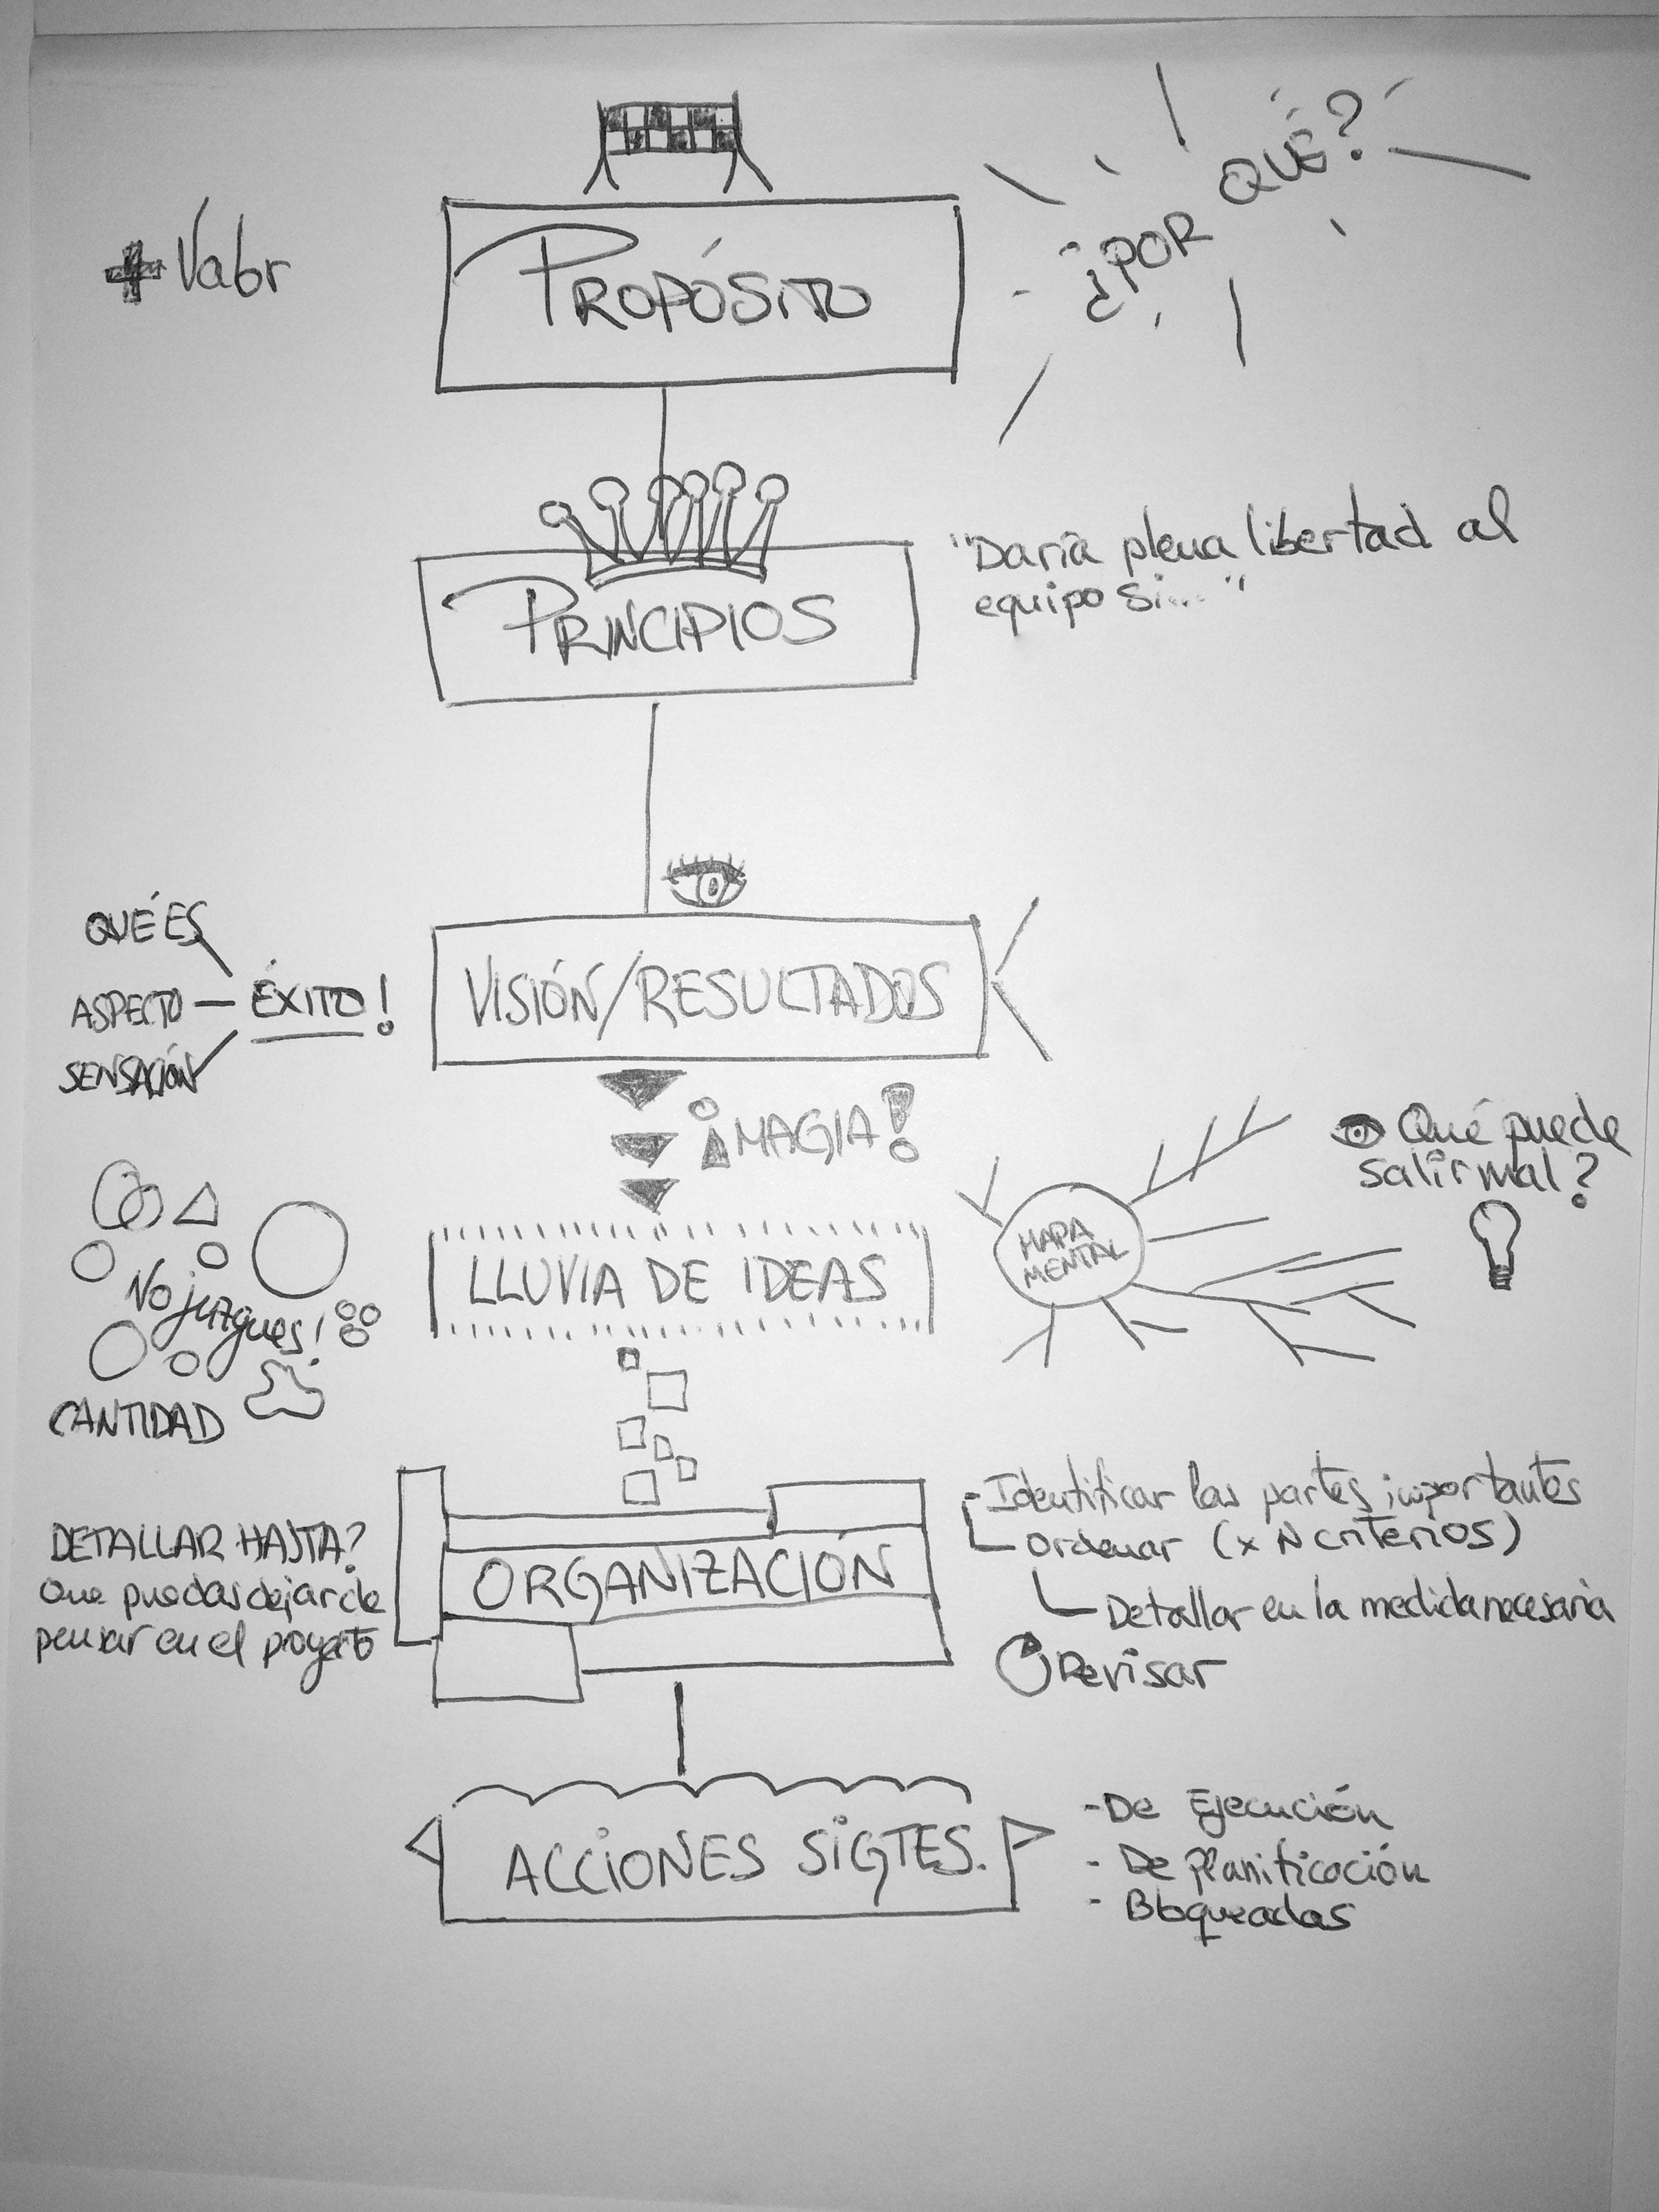 + Valor
PROPÓSITO
¿POR QUÉ?
PRINCIPIOS
"Daría plena libertad al
equipo si..."
QUÉ ES
ASPECTO
SENSACIÓN
ÉXITO!
VISIÓN/RESULTADOS
¡MAGIA!
LLUVIA DE IDEAS
No juzgues!
CANTIDAD
MAPA
MENTAL
Qué puede
salir mal?
DETALLAR HASTA?
Que puedas dejar de
pensar en el proyecto
ORGANIZACIÓN
- Identificar las partes importantes
Ordenar (x N criterios)
Detallar en la medida necesaria
Revisar
ACCIONES SIGTES.
- De Ejecución
- De Planificación
- Bloqueadas